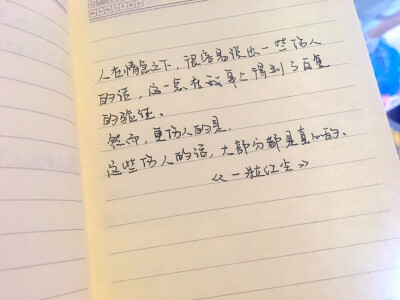 人在情急之下，很容易说出一些伤人
的话，这一点在我身上得到了反复
的验证。
然而，更伤人的是，
这些伤人的话，大部分都是真心的。
《一粒红尘》